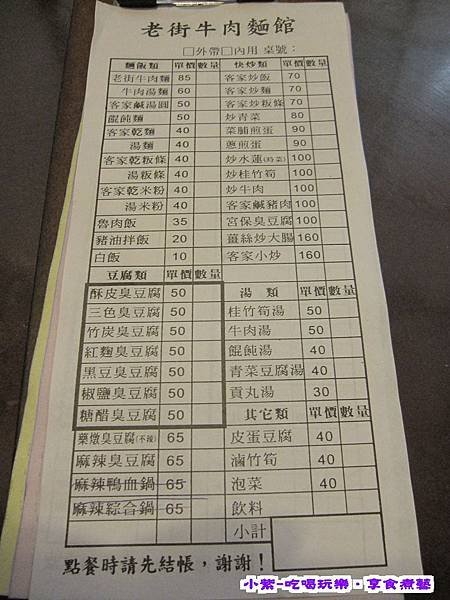 老街牛肉麵館
□外帶□內用 桌號：
麵飯類 單價 數量 快炒類 單價 數量
老街牛肉麵 85 客家炒飯 70
牛肉湯麵 60 客家炒麵 70
客家鹹湯圓 50 客家炒粄條 70
餛飩麵 50 炒青菜 80
客家乾麵 40 菜脯煎蛋 90
湯麵 40 蔥煎蛋 90
客家乾粄條 40 炒水蓮(時菜) 100
湯粄條 40 炒桂竹筍 100
客家乾米粉 40 炒牛肉 100
湯米粉 40 客家鹹豬肉 100
魯肉飯 35 宮保臭豆腐 100
豬油拌飯 20 薑絲炒大腸 160
白飯 10 客家小炒 160
豆腐類 單價 數量
酥皮臭豆腐 50 湯類 單價 數量
三色臭豆腐 50 桂竹筍湯 50
竹炭臭豆腐 50 牛肉湯 50
紅麴臭豆腐 50 餛飩湯 40
黑豆臭豆腐 50 青菜豆腐湯 40
椒鹽臭豆腐 50 貢丸湯 30
糖醋臭豆腐 50 其它類 單價 數量
藥燉臭豆腐(不辣) 65 皮蛋豆腐 40
麻辣臭豆腐 65 滷竹筍 40
麻辣鴨血鍋 65 泡菜 40
麻辣綜合鍋 65 飲料
小計
點餐時請先結帳，謝謝！
小紫-吃喝玩樂‧享食煮藝